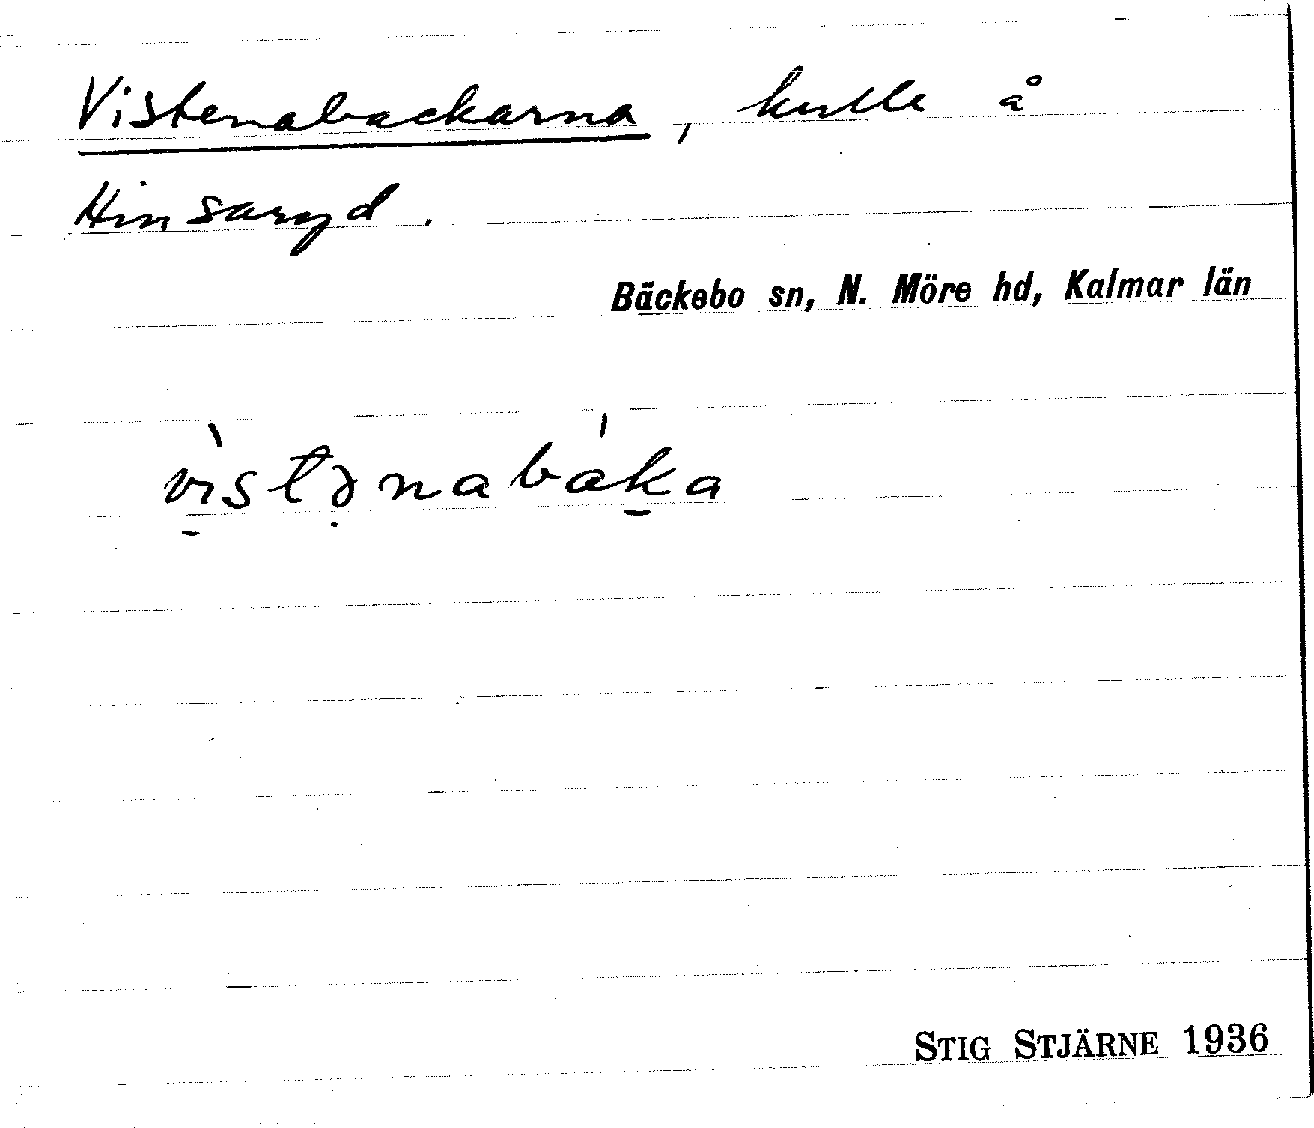 Vistenabackarna, kulle å
Hinsaryd.
Bäckebo sn, N. Möre hd, Kalmar län
vìstənabáka
STIG STJÄRNE 1936